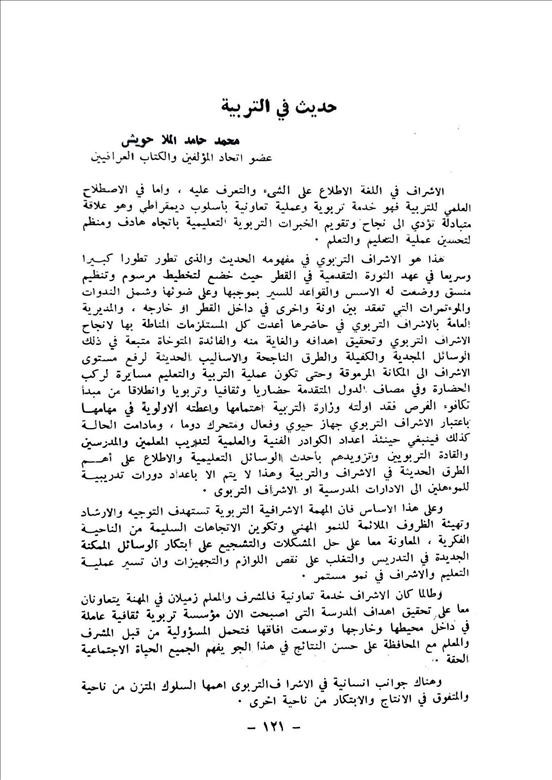 حديث في التربية
محمد حامد الملا حويش
عضو اتحاد المؤلفين والكتاب العراقيين
الاشراف في اللغة الاطلاع على الشيء والتعرف عليه ، واما في الاصطلاح
العلمي للتربية فهو خدمة تربوية وعملية تعاونية بأسلوب ديمقراطي وهو علاقة
متبادلة تؤدي الى نجاح وتقويم الخبرات التربوية التعليمية باتجاه هادف ومنظم
لتحسين عملية التعليم والتعلم ·
هذا هو الاشراف التربوي في مفهومه الحديث والذى تطور تطورا كبيرا
وسريعا في عهد الثورة التقدمية في القطر حيث خضع لتخطيط مرسوم وتنظيم
منسق ووضعت له الاسس والقواعد للسير بموجبها وعلى ضوئها وشمل الندوات
والموءتمرات التي تعقد بين اونة واخرى في داخل القطر او خارجه ، والمديرية
العامة بالاشراف التربوي في حاضرها أعدت كل المستلزمات المناطة بها لانجاح
الاشراف التربوي وتحقيق اهدافه والغاية منه والفائدة المتوخاة متبعة في ذلك
الوسائل المجدية والكفيلة والطرق الناجحة والاساليب الحديثة لرفع مستوى
الاشراف الى المكانة المرموقة وحتى تكون عملية التربية والتعليم مسايرة لركب
الحضارة وفي مصاف الدول المتقدمة حضاريا وثقافيا وتربويا وانطلاقا من مبدأ
تكافوء الفرص فقد اولته وزارة التربية اهتمامها واعطته الاولوية في مهامها
باعتبار الاشراف التربوي جهاز حيوي وفعال ومتحرك دوما ، ومادامت الحالة
كذلك فينبغي حينئذ اعداد الكوادر الفنية والعلمية لتدريب المعلمين والمدرسين
والقادة التربويين وتزويدهم بأحدث الوسائل التعليمية والاطلاع على أهم
الطرق الحديثة في الاشراف والتربية وهذا لا يتم الا باعداد دورات تدريبية
للموءهلين الى الادارات المدرسية او الاشراف التربوى ·
وعلى هذا الاساس فان المهمة الاشرافية التربوية تستهدف التوجيه والارشاد
وتهيئة الظروف الملائمة للنمو المهني وتكوين الاتجاهات السليمة من الناحية
الفكرية ، المعاونة معا على حل المشكلات والتشجيع على أبتكار الوسائل الممكنة
الجديدة في التدريس والتغلب على نقص اللوازم والتجهيزات وان تسير عملية
التعليم والاشراف في نمو مستمر ·
وطالما كان الاشراف خدمة تعاونية فالمشرف والمعلم زميلان في المهنة يتعاونان
معا على تحقيق اهداف المدرسة التى اصبحت الان مؤسسة تربوية ثقافية عاملة
في داخل محيطها وخارجها وتوسعت افاقها فتحمل المسؤولية من قبل المشرف
والمعلم مع المحافظة على حسن النتائج في هذا الجو يفهم الجميع الحياة الاجتماعية
الحقة ·
وهناك جوانب انسانية في الاشرا فالتربوى اهمها السلوك المتزن من ناحية
والمتفوق في الانتاج والابتكار من ناحية اخرى ·
- ١٢١ -